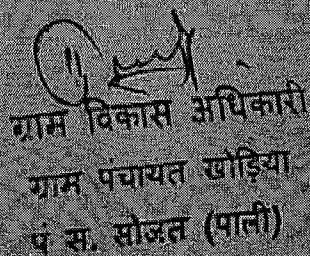 ग्राम विकास अधिकारी
ग्राम पंचायत खोड़िया
पं स. सोजत (पाली)